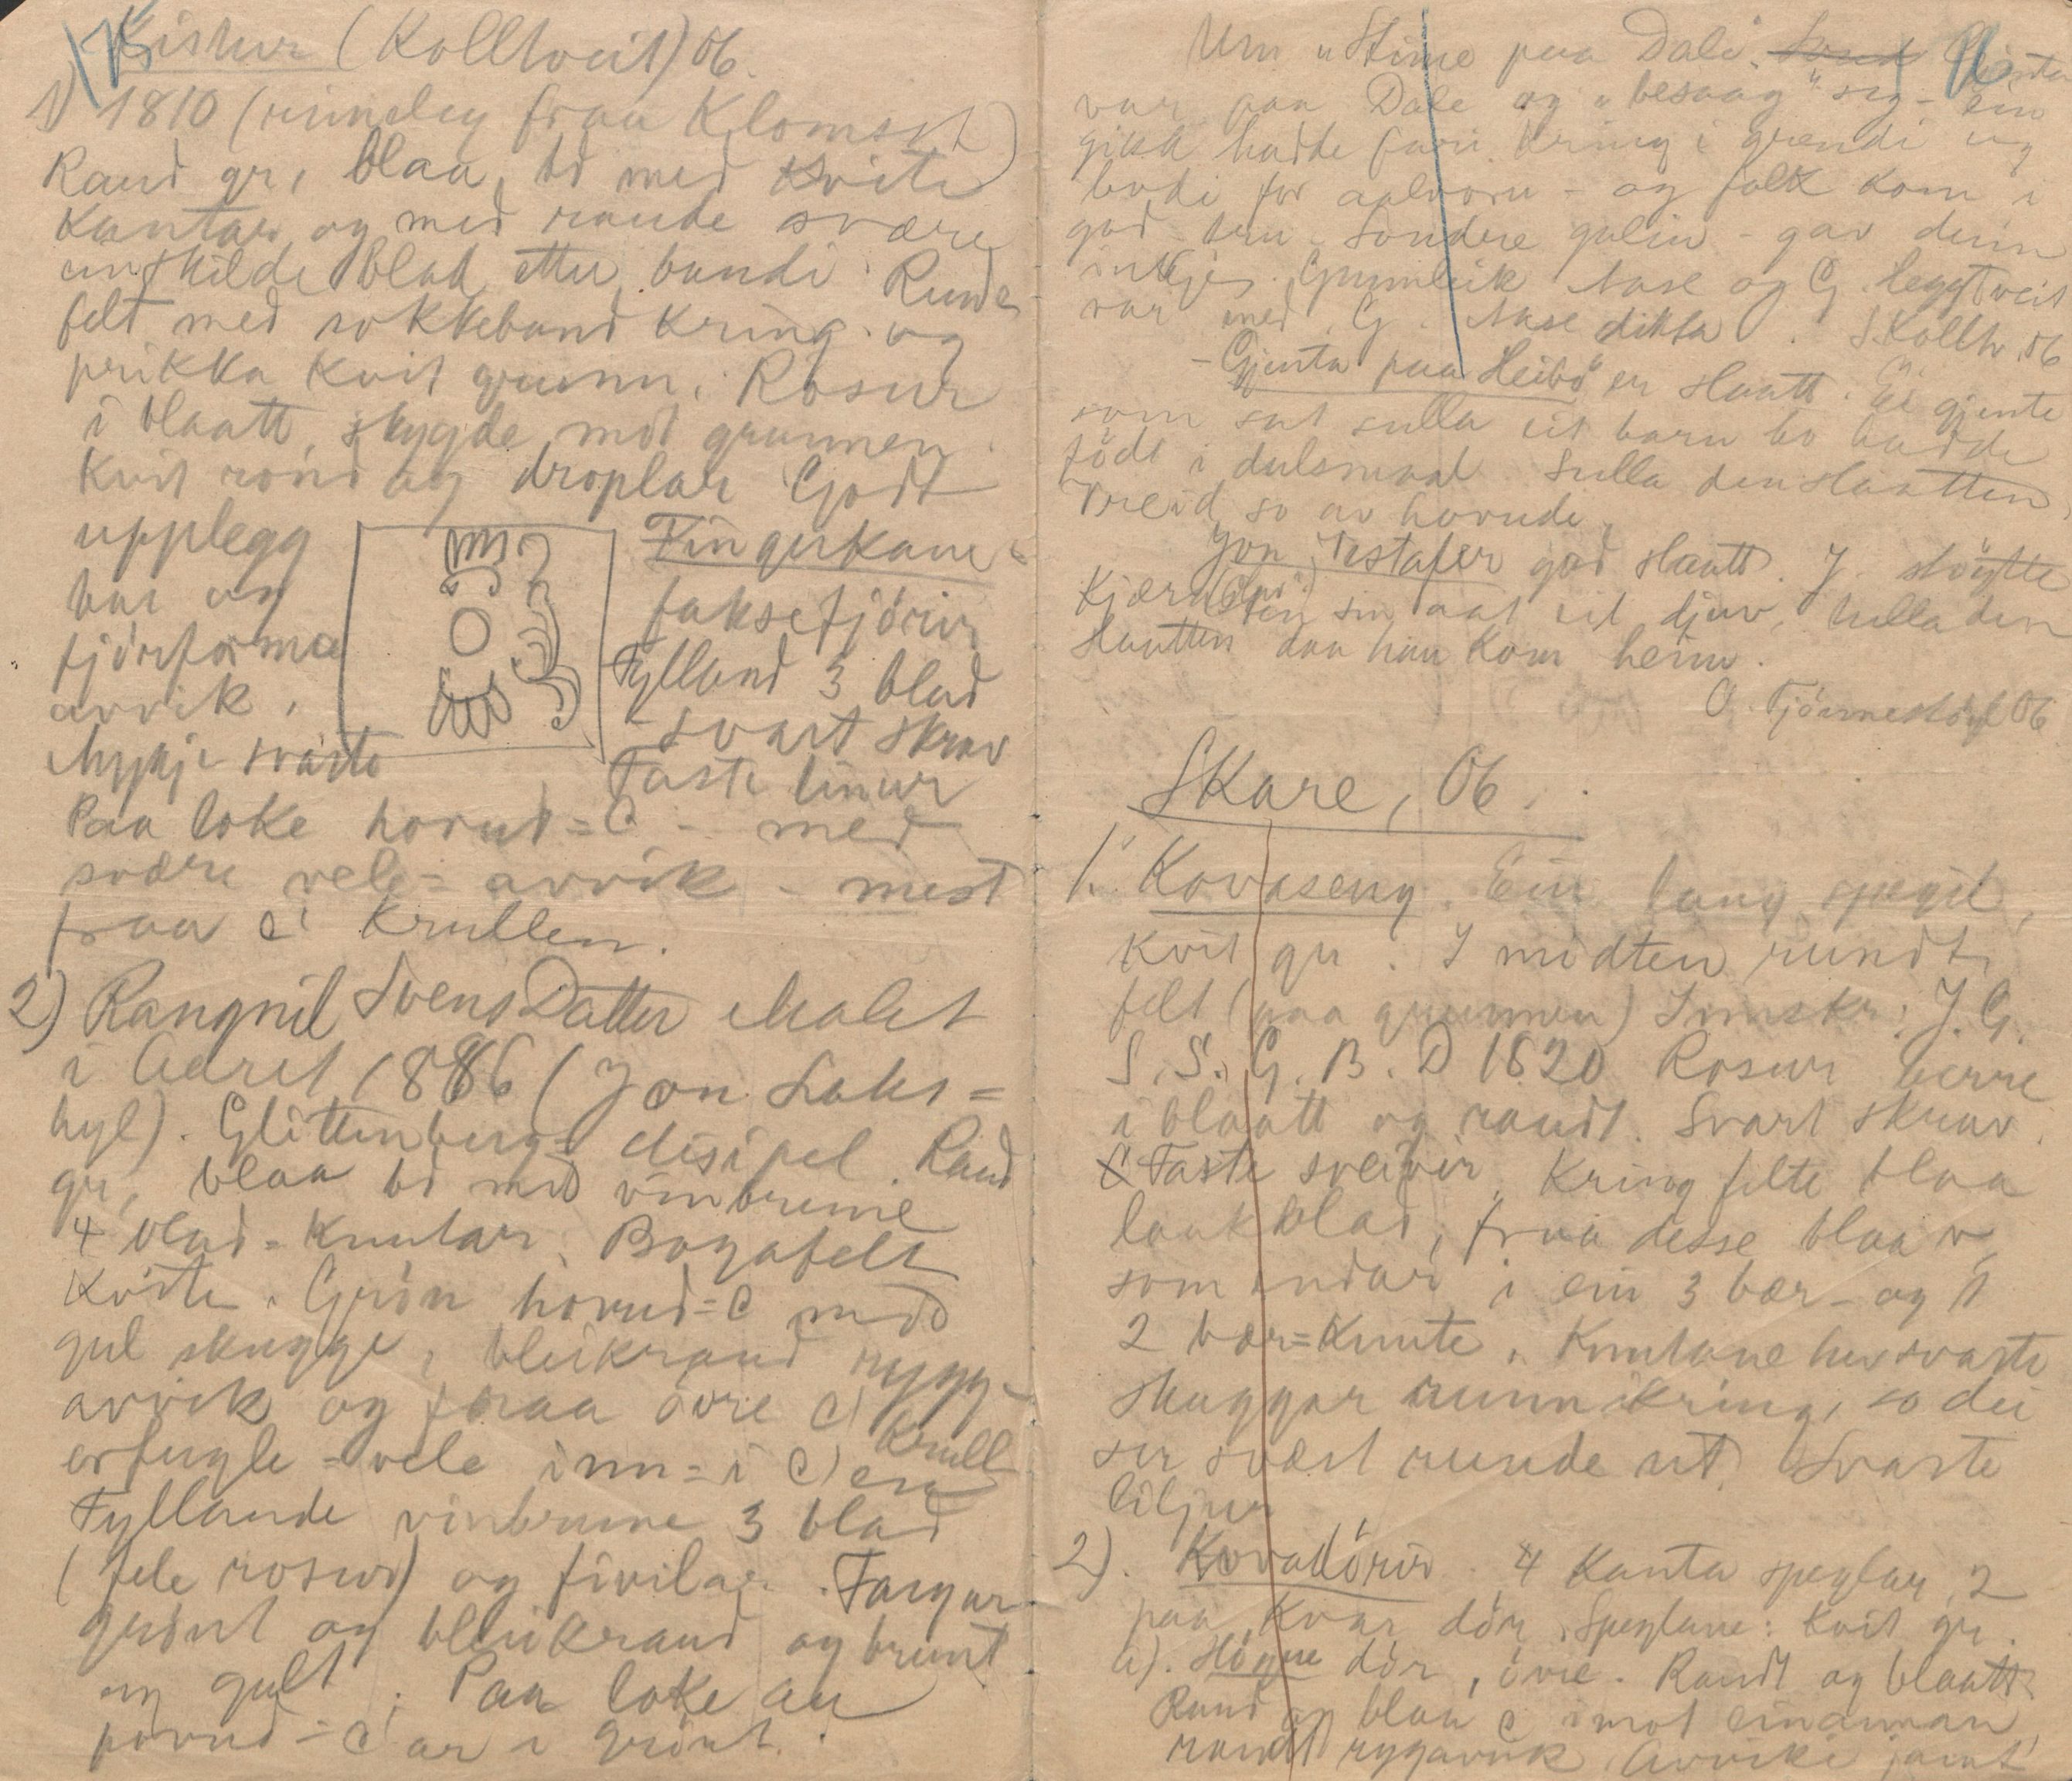 175
Kistur (Kolltveit) 06.
1) 1810 (rimeleg fraa Klomset)
Raud gr, blaa bd med kvite
kantar og med raude svære
einskilde blad etter bandi. Runde
felt med rokkeband kring og
prikka kvit grunn. Rosur
i blaatt, skygde mot grunnen.
Kvit rond og droplar Godt
upplegg
har og
fjörforma
avvik.
Mykje svarte
Fingerkane =
faksefjörir
Fylland 3 blad
- svart skrav
Faste linur
Paa loke hovud = C - med
svære vele = avvik - mest
fraa C i krullen.
2) Rangnil Svens Datter Malet
i Aaret 1886 (Jon Laks =
hyl). Glittenberg = disipel. Raud
gr, blaa bd med vinbrune
4 blad = knutar. Bogafelt
kvite. Grön hovud = C med
gul skugge, bleikraud rygg-
avvik og fraa övre C krull
erfugle = vele inn = i C en
Fyllande vinbrune 3 blad
(fele rosur) og fivilar. Fargar
grönt og bleikraud og brunt
og gult. Paa loke au
hovud = C ar i grönt.
176
Um "Stime paa Dale" Gjenta
var paa Dale og "besaag" seg - ein
gikk hadde fari kring i grendi og
bodi for aalvoru - og folk kom i
god tru. Sondre galin - gav deim
inkje. Gunnleik Aase og G. Leggtveit
var med. G. Aase dikta. S Kolltv. 06
- Gjenta paa Heibö" er slaatt. Ei gjente
som sat sulla eit barn ho hadde
födt i dulsmaal Sulla den slaatten,
vreid so av hovude.
Jon Vestafer god slaatt. J. støytte
Kjæra sin aat eit djuv, tulla den
slaatten daa han kom heim.
O. Fjönneskögl 06
Skare, 06.
1. Kovaseng. Ein lang spegil,
kvit gr. I midten rundt
felt (paa grunnen) Innskr: J. G.
S. S. G. B. D 1820 Rosur berre
i blaatt og raudt. Svart skrav.
Faste sveivir. Kring felte blaa
laukblad, fraa desse blaa r,
som endar i ein 3 bær - og 1
2 bær = knute. Knutane hev svarte
skuggar runn ikring, so dei
ser svært runde ut. Svarte
liljur
2). Kovadörir. 4 kanta speglar, 2
paa kvar dör. Speglane: kvit gr.
a). Högre dör, övre. Raudt og blaatt
Raud og blaa C imot einannan
raudt ryggavvik Avviki jamt